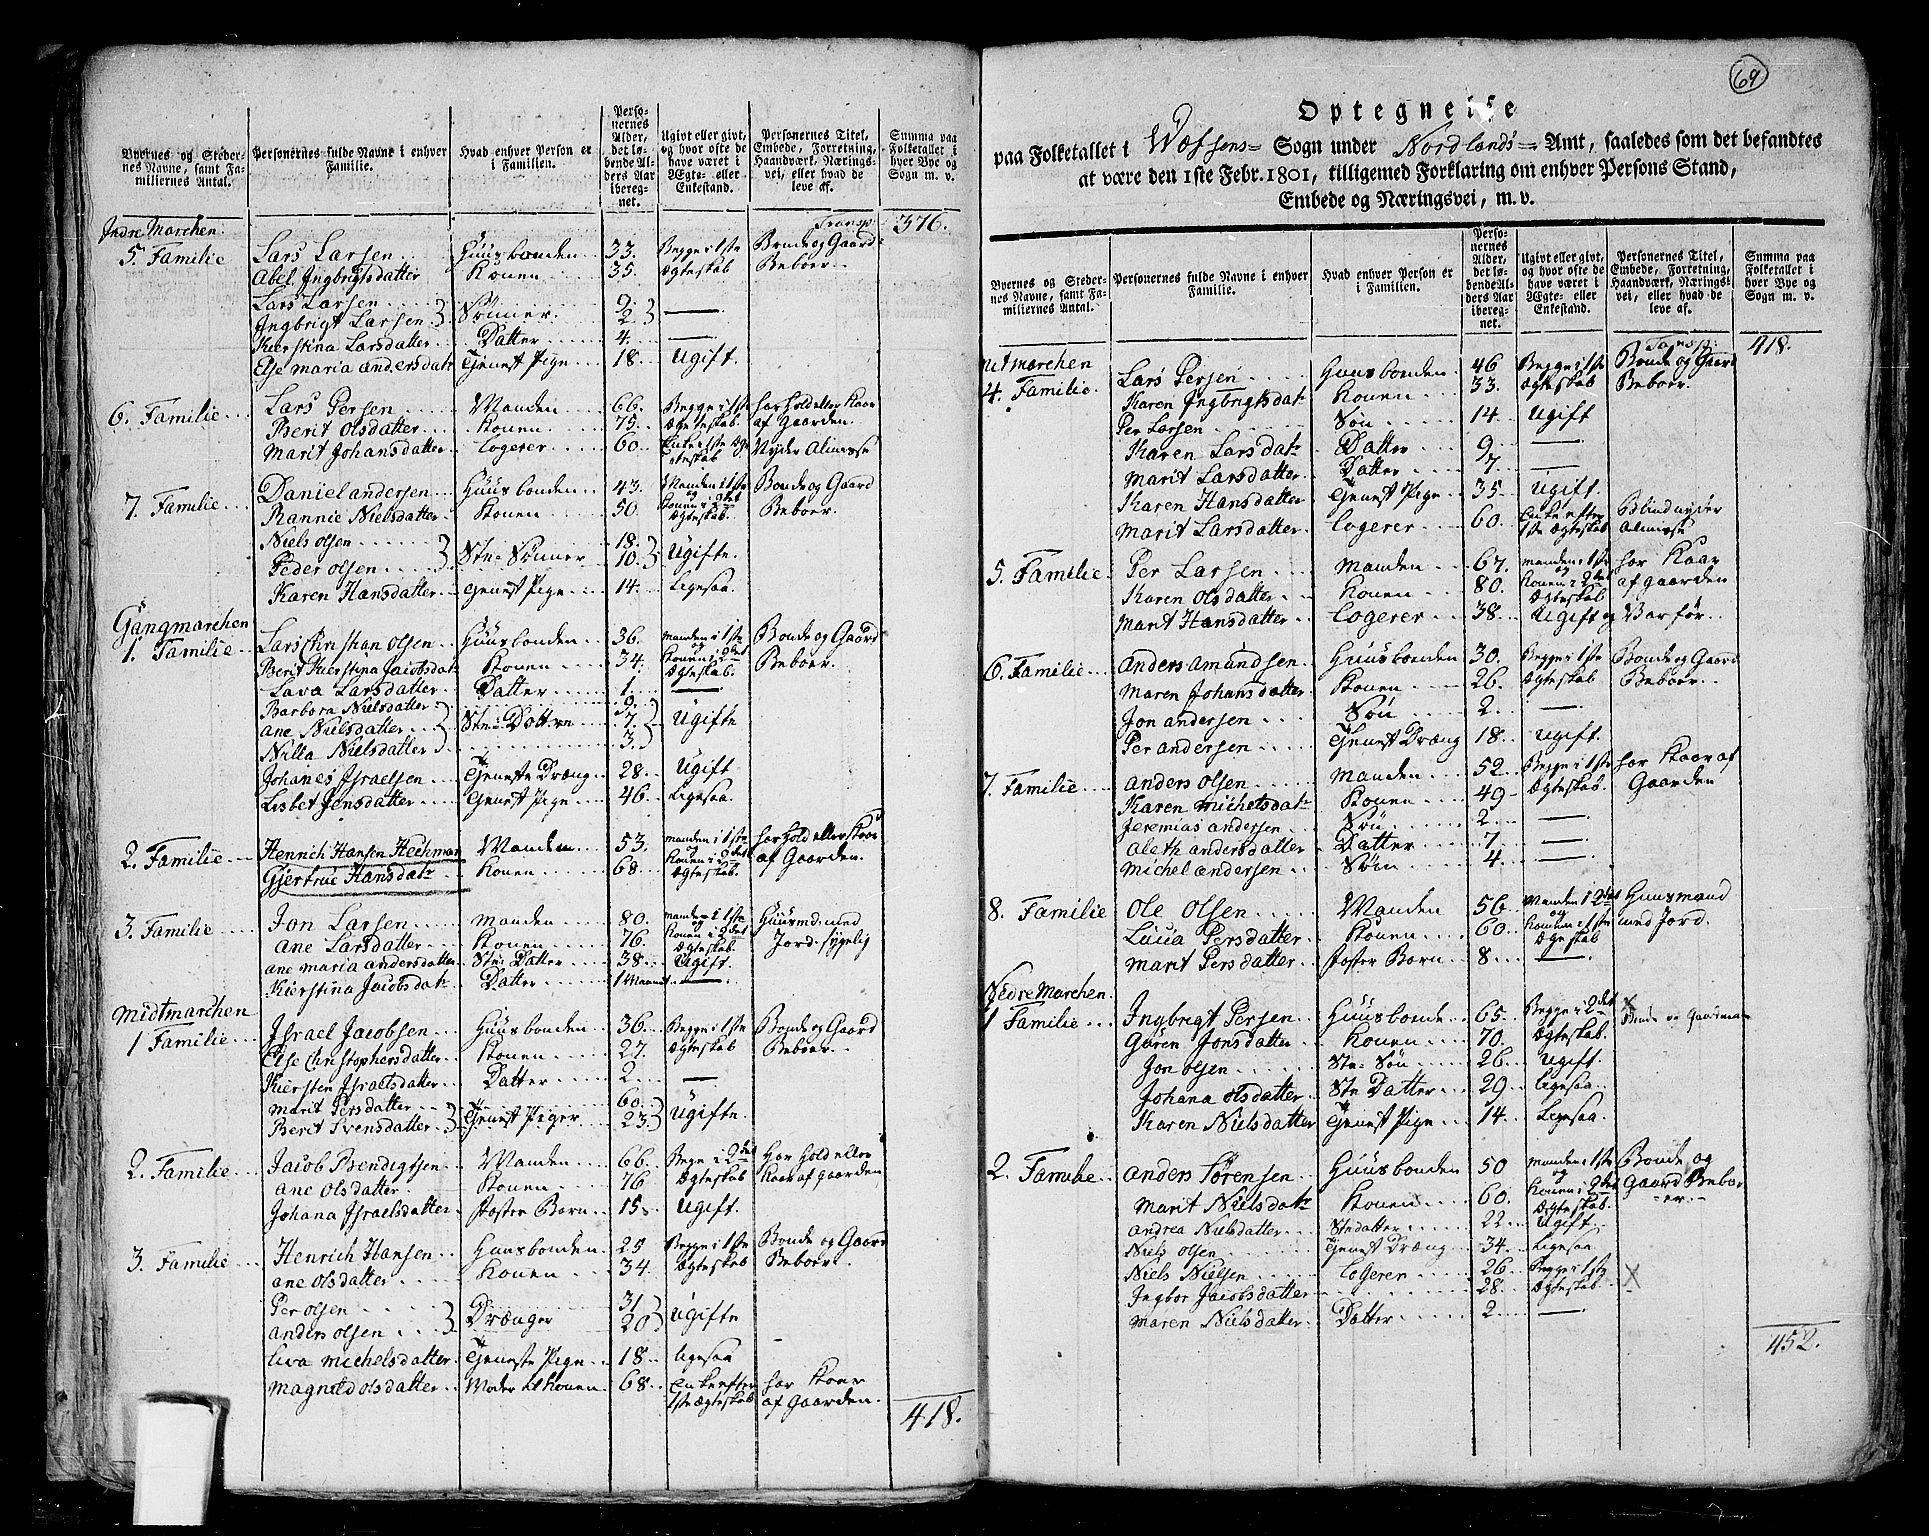 Byernes og Steder-
nes Navne, samt Fa-
miliernes Antal.
Personernes fulde Navne i enhver
Familie.
Hvad enhver Person er
i Familien.
Perso-
nernes
Alder,
det lø-
bende Al-
ders Aar
ibereg-
net.
Ugivt eller givt,
og hvor ofte de
have været i
Ægte- eller
Enkestand.
Personernes Titel,
Embede, Forretning,
Haandværk, Nærings-
vei, eller hvad de
leve af.
Summa paa
Folketallet i
hver Bye og
Sogn m. v.
Indre Marchen Transp: 376.
5. Familie Lars Larsen Huusbonden 33. Begge i 1ste Bonde og Gaard
Abel Ingbrigtsdatter Konen 35. Ægteskab Beboer
Lars Larsen 9.
Ingbrigt Larsen Sønner 2
Kierstina Larsdatter Datter 4.
Else maria andersdatr Tjenest Pige 18 Ugift
6. Familie Lars Persen Manden 66. Begge i 1ste har Hold eller Kaar
Berit Olsdatter Konen 75. Ægteskab af Gaarden.
Marit Johansdatter Logerer 60 Enke i 1ste Æg- Nyder Almisse
teskab
7. Familie Daniel andersen Huusbonden 43. Manden i 1ste Bonde og Gaard
og
Rannie Nielsdatter Konen 50 Konen i 2det Beboer
Ægteskab.
Niels olsen 18.
Peder olsen Ste-Sønner 10. Ugifte.
Karen Hansdatter Tjenest Pige 14. Ligesaa.
Gangmarchen
1. Familie Lars Christian olsen Huusbonden 36. Manden i 1ste Bonde og Gaard
og
Berit Kierstina Jacobsdatr Konen 34. Konen i 2det Beboer
Ægteskab.
Lava Larsdatter Datter 1.
Barbora Nielsdatter 9.
ane Nielsdatter Ste-Døttre 7. Ugifte
Nilla Nielsdatter 3.
Johanes Israelsen Tjeneste Dræng 28. Ugift
Lisbet Jensdatter Tjenest Pige 46. Ligesaa.
2. Familie Henrich Hansen Heckman Manden 53. manden i 1ste har Hold eller Kaar
og
Gjertrue Hansdatr Konen 68. Konen i 2det af Gaarden.
Ægteskab.
3. Familie Jon Larsen manden 80. manden i 1ste Huusmd: med
og
ane Larsdatter Konen 76. Konen i 2det Jord. sygelig
Ægteskab.
ane maria andersdatter Ste-Datter 38. Ugift.
Kierstina Jacobsdatr Datter 1 Maaned
Midtmarchen
1 Familie Israel Jacobsen Huusbonden 36. Begge i 1ste Bonde og Gaard
Else Christophersdatter Konen 27. Ægteskab Beboer
Kiersten Israelsdatter Datter 2
Marit Persdatter 60.
Berit Svensdatter Tjenest Piger 23. Ugifte.
2. Familie Jacob Bendigtsen Manden 66. Bege i 2det Har Hold eller
ane olsdatter Konen 76 Ægteskab Kaar af gaarden
Johana Israelsdatter foster Barn 15. Ugift.
3. Familie Henrich Hansen Huusbonden 25 Begge i 1ste Bonde og Gaard
ane olsdatter Konen 34. Ægteskab Beboer
Per olsen 31
anders olsen Drænger 20 Ugifte
Liva michelsdatter Tjeneste Pige 18 ligesaa
magnild olsdatter Moder til Konen 68 Enke efter har Kaar
1ste Ægteskab af Gaarden.
418.
69
Optegnelse
paa Folketallet i Wefsens Sogn under Nordlands Amt, saaledes som det befandtes
at være den 1ste Febr. 1801, tilligemed Forklaring om enhver Persons Stand,
Embede og Næringsvei, m. v.
Byernes og Steder-
nes Navne, samt Fa-
miliernes Antal.
Personernes fulde Navne i enhver
Familie.
Hvad enhver Person er
i Familien.
Perso-
nernes
Alder,
det lø-
bende Al-
ders Aar
ibereg-
net.
Ugivt eller givt,
og hvor ofte de
have været i
Ægte- eller
Enkestand.
Personernes Titel,
Embede, Forretning,
Haandværk, Nærings-
vei, eller hvad de
leve af.
Summa paa
Folketallet i
hver Bye og
Sogn m. v.
Transp: 418.
Mitmarchen
4. Familie Lars Persen Huusbonden 46 Begge i 1ste Bonde og Gaard
Karen Ingbrigtsdatr Konen 33. Ægteskab Beboer
Per Larsen Søn 14 Ugift
Karen Larsdatr Datter 9
Marit Larsdatter Datter 7
Karen Hansdatter Tjenest Pige 35 Ugift.
Marit Larsdatter Logerer 60. Enke efter Blind nyder
1ste Ægteskab Almisse
5. Familie Per Larsen manden 67. manden i 1ste har Kaar
og
Karen olsdatter Konen 80. Konen i 2det af gaarden
Ægteskab
Marit Hansdatter Logerer 38. Ugift og Vanfør.
6. Familie anders amundsen Huusbonden 30. Begge i 1ste Bonde og Gaard
Maren Johansdatter Konen 26. Ægteskab Beboer
Jon andersen Søn 2
Per andersen Tjenest Dræng 18 Ugift.
7. Familie anders olsen manden 52. Begge i 1ste har Kaar af
Karen michelsdatr Konen 49 Ægteskab. Gaarden
Jeremias andersen Søn 2
aleth andersdatter Datter 7
Michel andersen Søn 4
8. Familie Ole olsen Manden 56 Manden i 2det Huusmand
og
Lucia Persdatter Konen 60 Konen i 1ste med Jord.
Ægteskab.
marit Persdatter foster Barn 8
Nedre Marchen.
1 Familie Ingbrigt Persen Huusbonde 65 Begge i 2det X
Bonde og Gaardman
Gøren Jonsdatter Konen 70. Ægteskab.
Jon olsen Ste-Søn 26 Ugift
Johana olsdatter Ste Datter 29 ligesaa
Karen Nielsdatter Tjenest Pige 14 Ligesaa.
2. Familie anders Sørensen Huusbonden 50 manden i 1ste Bonde og
og
Marit Nielsdatr Konen 60. Konen i 2det Gaard Bebo-
Ægteskab. er
andrea Nielsdatter Stedatter 22 Ugift
Niels olsen Tjenest Dræng 34. Ligesaa
Niels Nielsen Logerer 26 Begge i 1ste X
Ingbor Jacobsdatter 28. Ægteskab.
Maren Nielsdatter Datter 2
452.